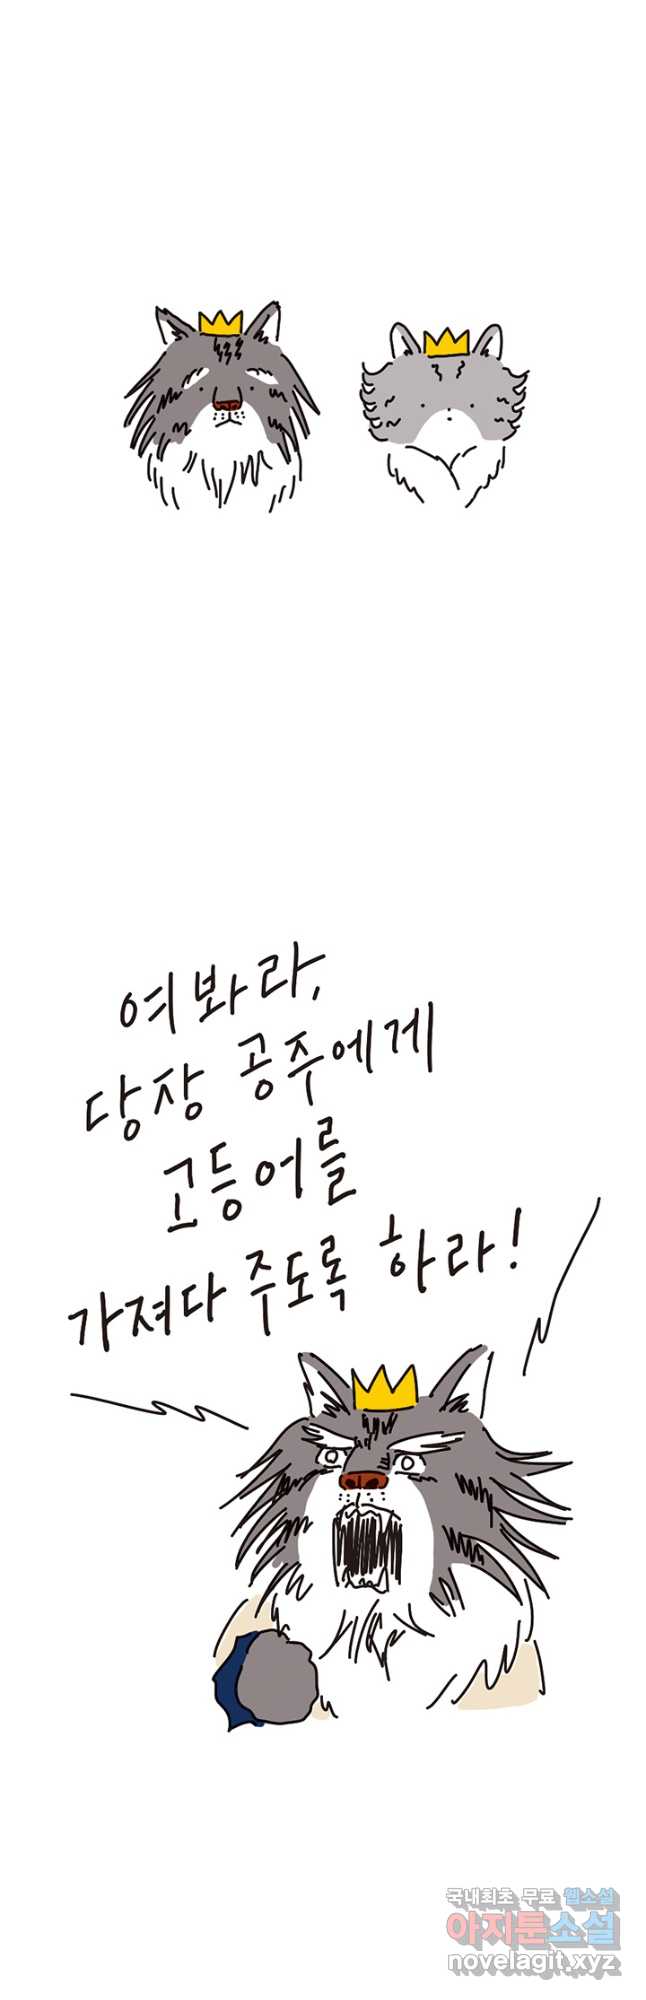 여봐라,
당장 공주에게
고등어를
가져다 주도록 하라!
국내최초 무료 웹소설
아지툰소설
novelagit.xyz